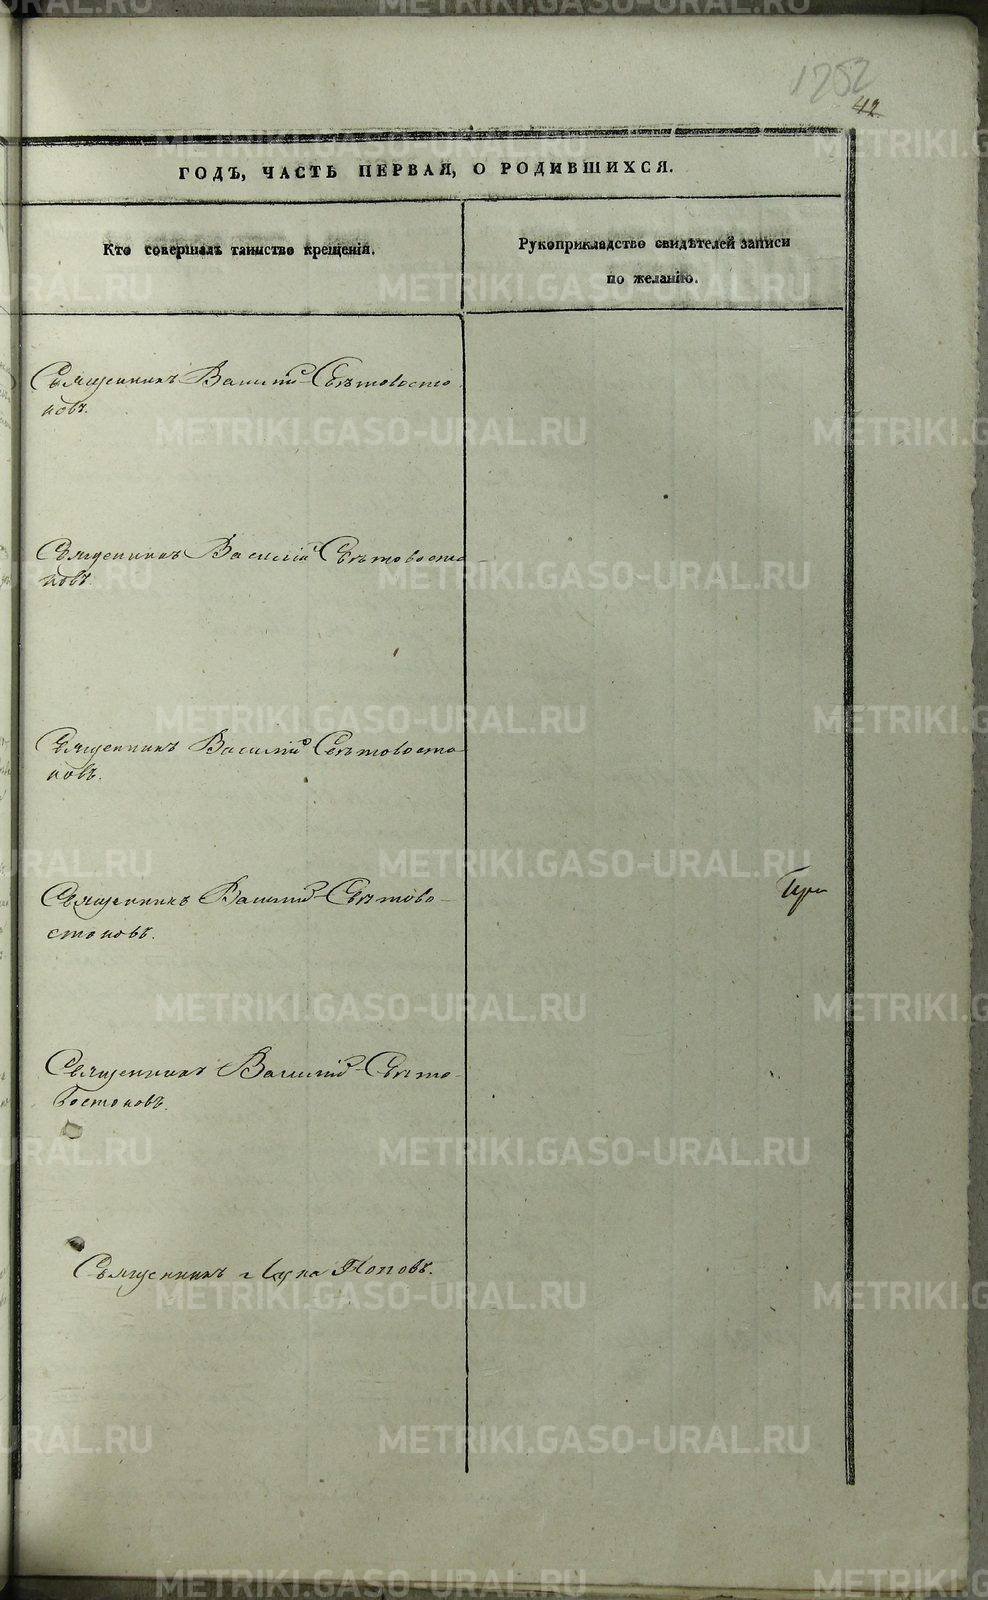 1252
42
ГОДЪ, ЧАСТЬ ПЕРВАЯ, О РОДИВШИХСЯ.
Кто совершалъ таинство крещенія.
Рукоприкладство свидѣтелей записи
по желанію.
Священникъ Василій Свѣтовосто
ковъ.
Священникъ Василій Свѣтовосто
ковъ.
Священникъ Василій Свѣтовосто
ковъ.
Священникъ Василій Свѣтово-
стоковъ.
Священникъ Василій Свѣто-
востоковъ.
Священникъ Лука Поповъ.
METRIKI.GASO-URAL.RU